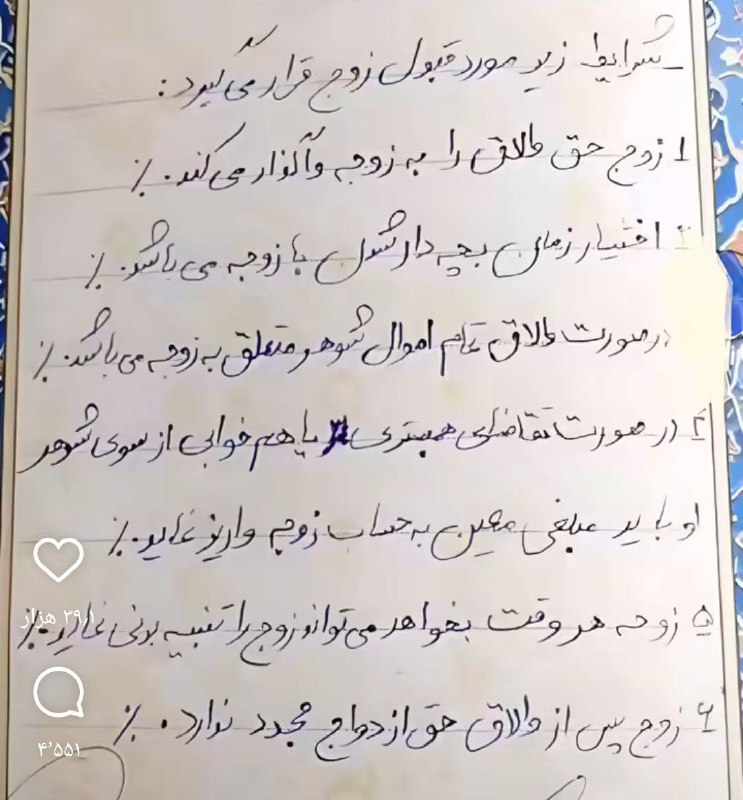 شرایط زیر مورد قبول زوج قرار می گیرد:
1 زوج حق طلاق را به زوجه واگذار می کند. ٪
۲ اختیار زمان بچه دار شدن با زوجه می باشد. ٪
در صورت طلاق تمام اموال شوهر متعلق به زوجه می باشد. ٪
۴ در صورت تقاضای همبستری یا هم خوابی از سوی شوهر
او باید مبلغی معین به حساب زوجه واریز نماید. ٪
۵ زوجه هر وقت بخواهد می تواند زوج را تنبیه بدنی نماید. ٪
۶ زوج پس از طلاق حق ازدواج مجدد ندارد. ٪
۳۹٫۱ هزار
۴٬۵۵۱